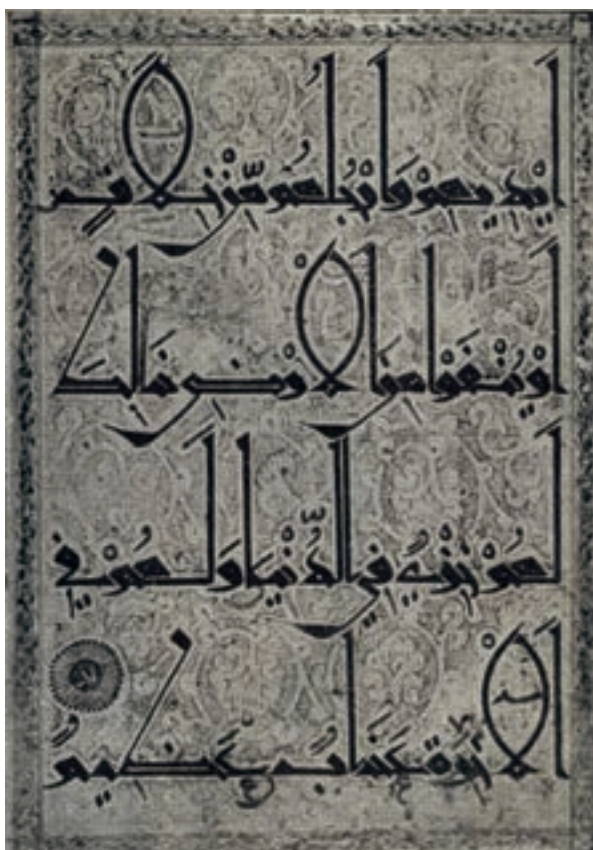 أيديهم وأرجلهم من خلاف
أو ينفوا من الأرض ذلك
لهم خزي في الدنيا ولهم في
الآخرة عذاب عظيم